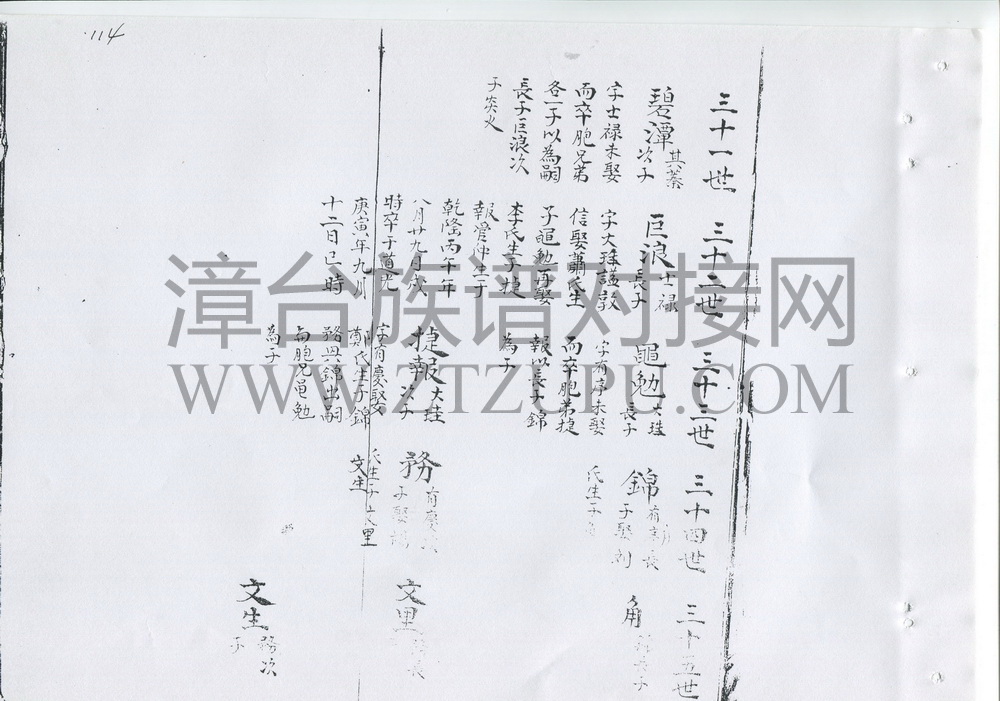 114
三十一世
碧潭 其蓁
次子
字士禄未娶
而卒胞兄弟
各一子以為嗣
長子巨浪次
子炎火
三十二世
巨浪 士禄
長子
字大珪諡敦
信娶蕭氏生
子黽勉再娶
李氏生子捷
報管仲生于
乾隆丙午年
八月廿九日戌
時卒于道光
庚寅年九月
十二日巳時
三十三世
黽勉 大珪
長子
字有序未娶
而卒胞弟捷
報以長子錦
為子
捷報 大珪
次子
字有慶娶
鄭氏生子錦
務與錦出嗣
與胞兄黽勉
為子
三十四世
錦 有 長
子娶劉
氏生子角
務 有慶
子娶
氏生子文里
文生
三十五世
角 長子
文里 務長
文生 務次
子
漳台族谱对接网
WWW.ZTZUPU.COM